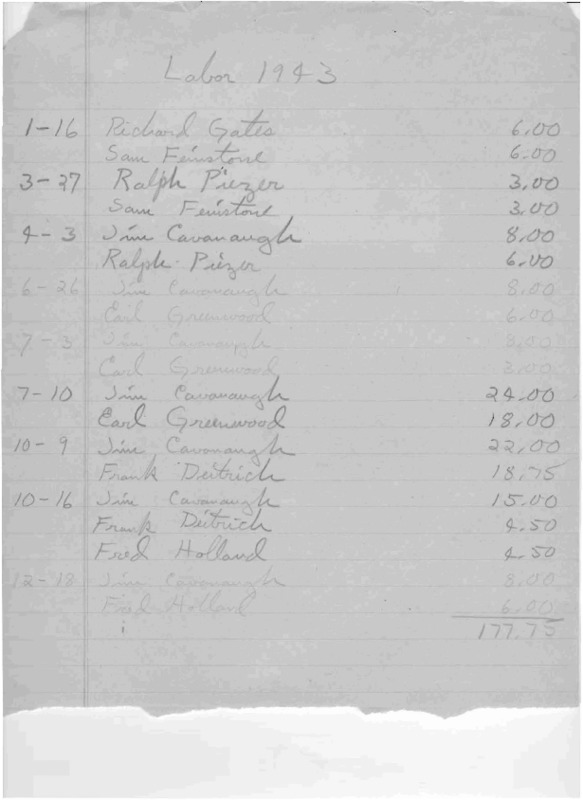 Labor 1943
1-16 Richard Gates 6.00
Sam Feinstone 6.00
3-27 Ralph Piezer 3.00
Sam Feinstone 3.00
4-3 Jim Cavanaugh 8.00
Ralph Piezer 6.00
6-26 Jim Cavanaugh 8.00
Earl Greenwood 6.00
7-3 Jim Cavanaugh 8.00
Earl Greenwood 3.00
7-10 Jim Cavanaugh 24.00
Earl Greenwood 18.00
10-9 Jim Cavanaugh 22.00
Frank Deitrich 18.75
10-16 Jim Cavanaugh 15.00
Frank Deitrich 4.50
Fred Holland 4.50
12-18 Jim Cavanaugh 8.00
Fred Holland 6.00
177.75